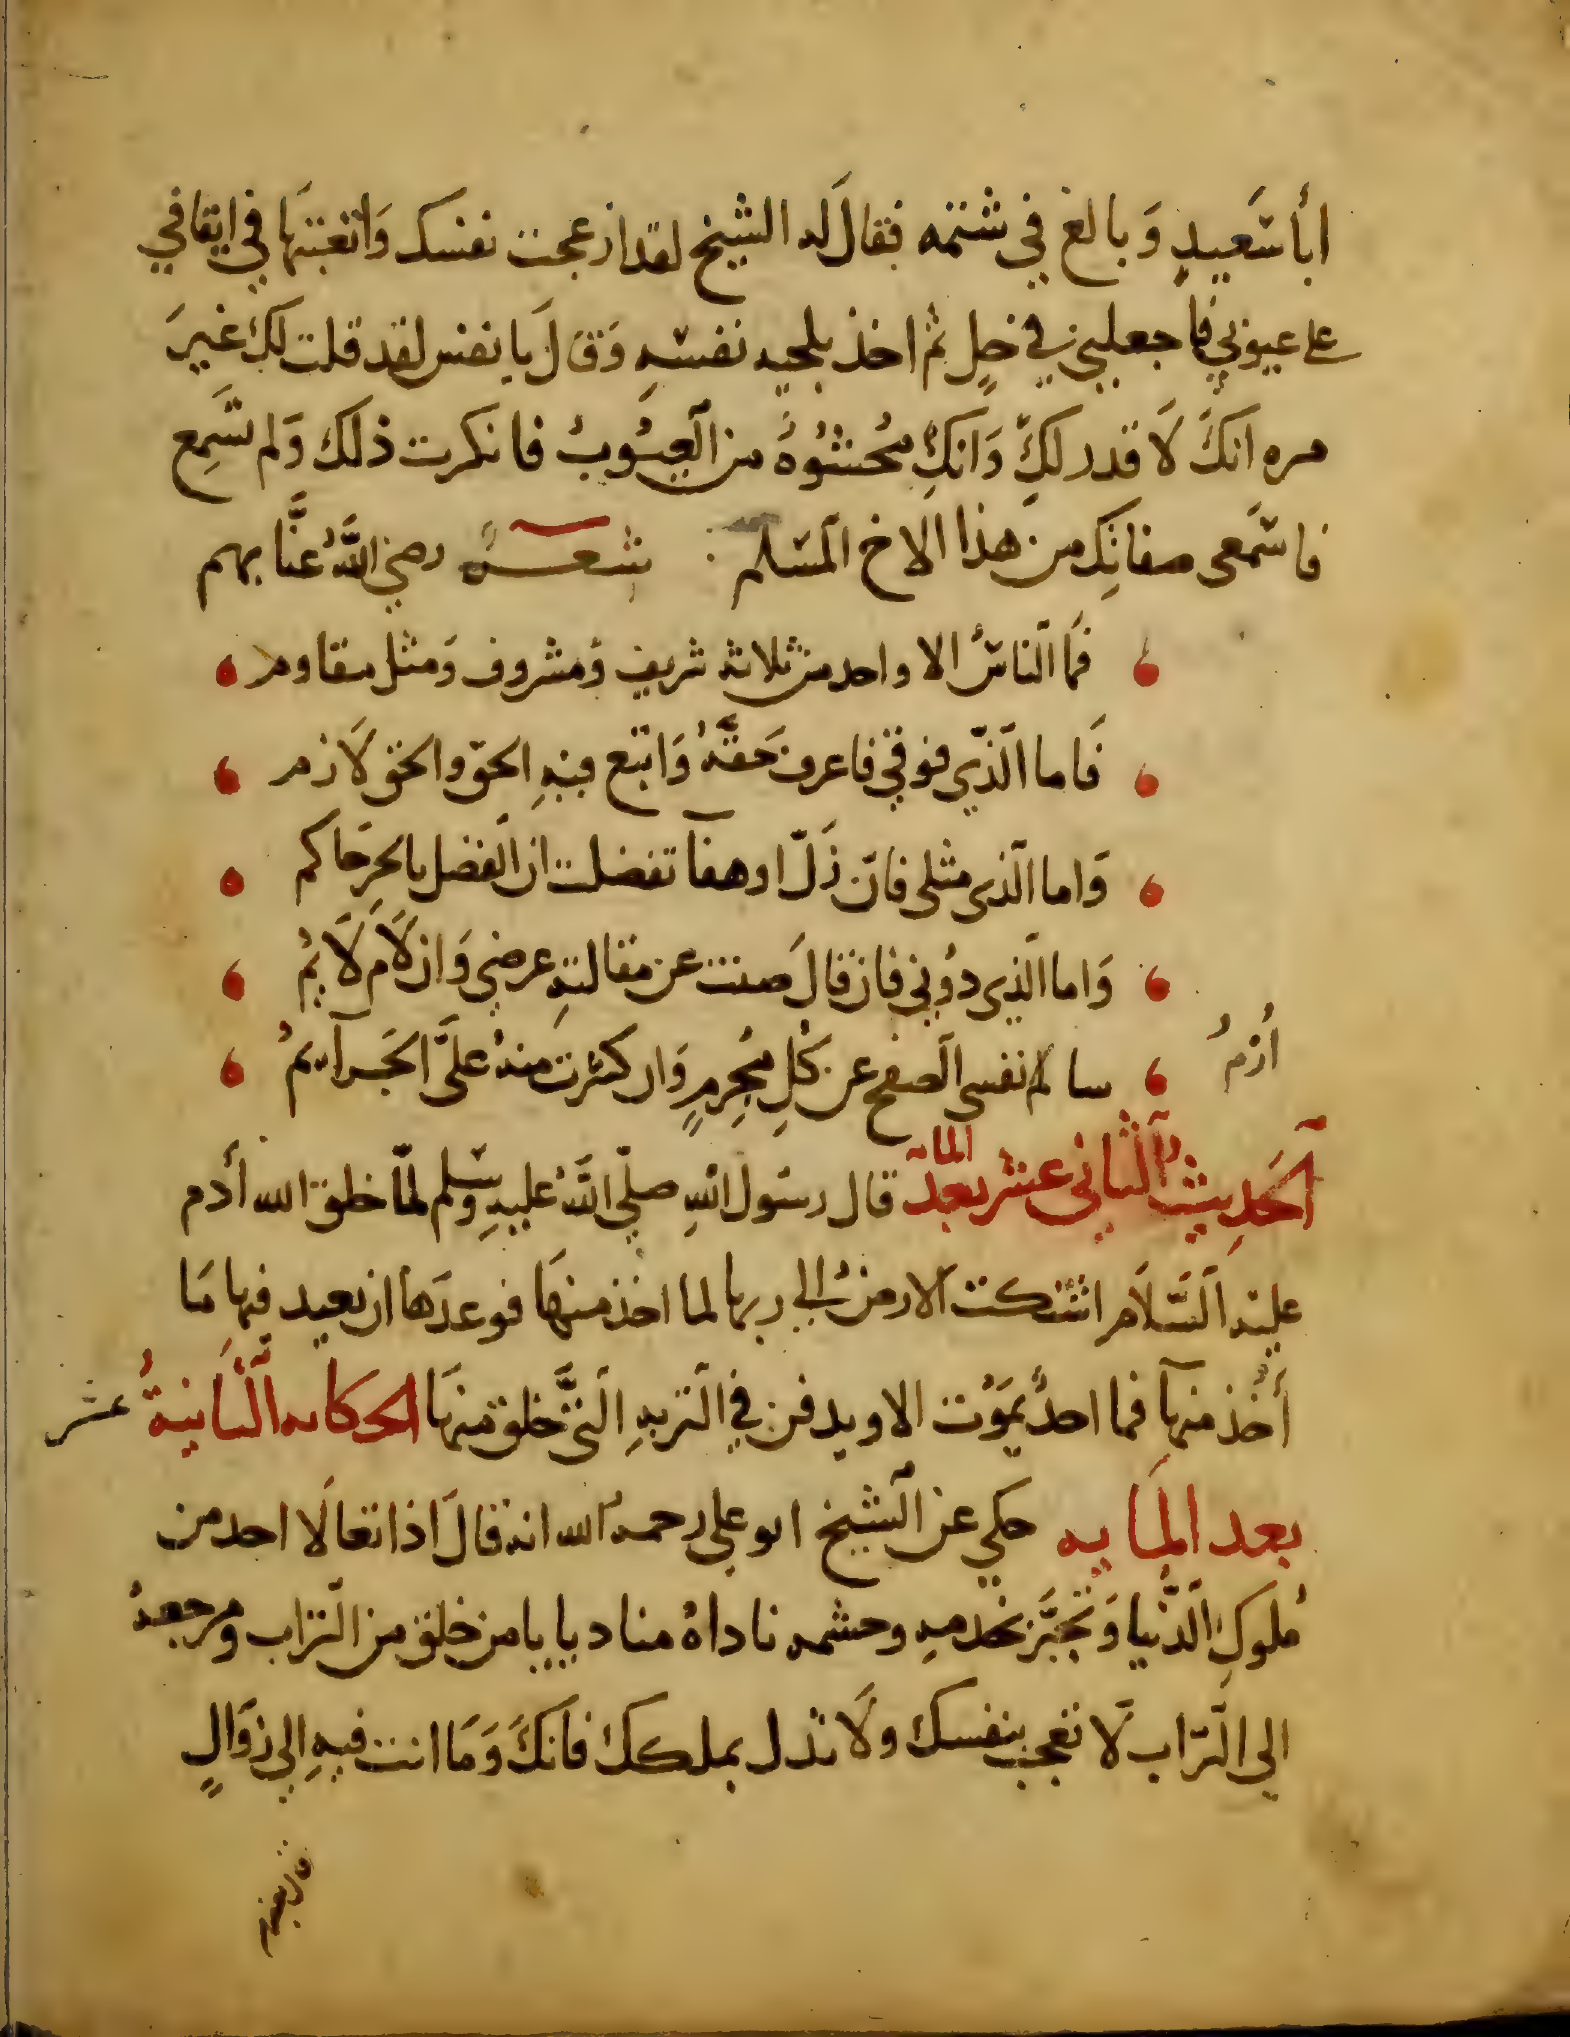 ابأ سَعيدٍ وَبالغ في شتمه فقالَ له الشيخ لقد ازعجت نفسك وَاتعبتهَا في ايقافي
على عيوبي فاجعليني في حلٍ ثم اخذ بلحيه نفسَهِ وَقالَ يا نفس لقد قلت لكِ غيرَ
مره انكَ لَا قدر لكِ وَانكِ مُحشُوهُ من العيُوبُ فانكرت ذلك وَلم تسَمِع
فاسَمعى صفاتِكِ من هَذا الاخ المسَلم شعــرهً رضي اللهُ عنَّا بهم
فَما الناسُ الا واحد من ثلاثه شريفٍ وَمشروف وَمثل مقاوم
فَاما الَّذي فوقي فاعرف حَقهُ وَاتبع فيهِ الحقّ والحق لَازم
وَاما الَّذى مثلى فان زَلّ اوهفآ تفضلت ان الفضل بالحرِحَاكم
وَاما الَّذي دوُني فان قالَ صنت عن مقالتهِ عرضي وَان لَام لَائمُ
سالزم نفسى الصفح عن كُلِ مُجرِمٍ وَان كثرت منهُ علىَّ الجَرآيمُ
اُلزمُ
آلحَدِيثُ الثاني عشر بعد المائه قال رسَول اللهِ صلّي اللهُ عليهِ وسَلم لمّا خلق الله أدم
عليه السَّلَام اشتكت الارضُ الي ربها لما اخذ منهَا فوعدَها ان يعيد فيها مَا
أخذ منهآ فما احدٌ يَموُت الا ويدفن في التربهِ التي خُلق منهَا الحكايه الثانيةُ عشر
بعد المَايه حكي عن الشيخ ابو على رحمهُ الله انه قالَ اذا تعالَا احد من
مُلوكِ الدُّنيا وَتجبَّر بخدمهِ وحشمه ناداهُ مناد يا يا من خلق من التراب ومرجعهُ
الي التّراب لَا تعجب بنفسك ولَا تدل بملكك فانكَ وَمَا انت فيهِ الي زوَالٍ
فان بعض